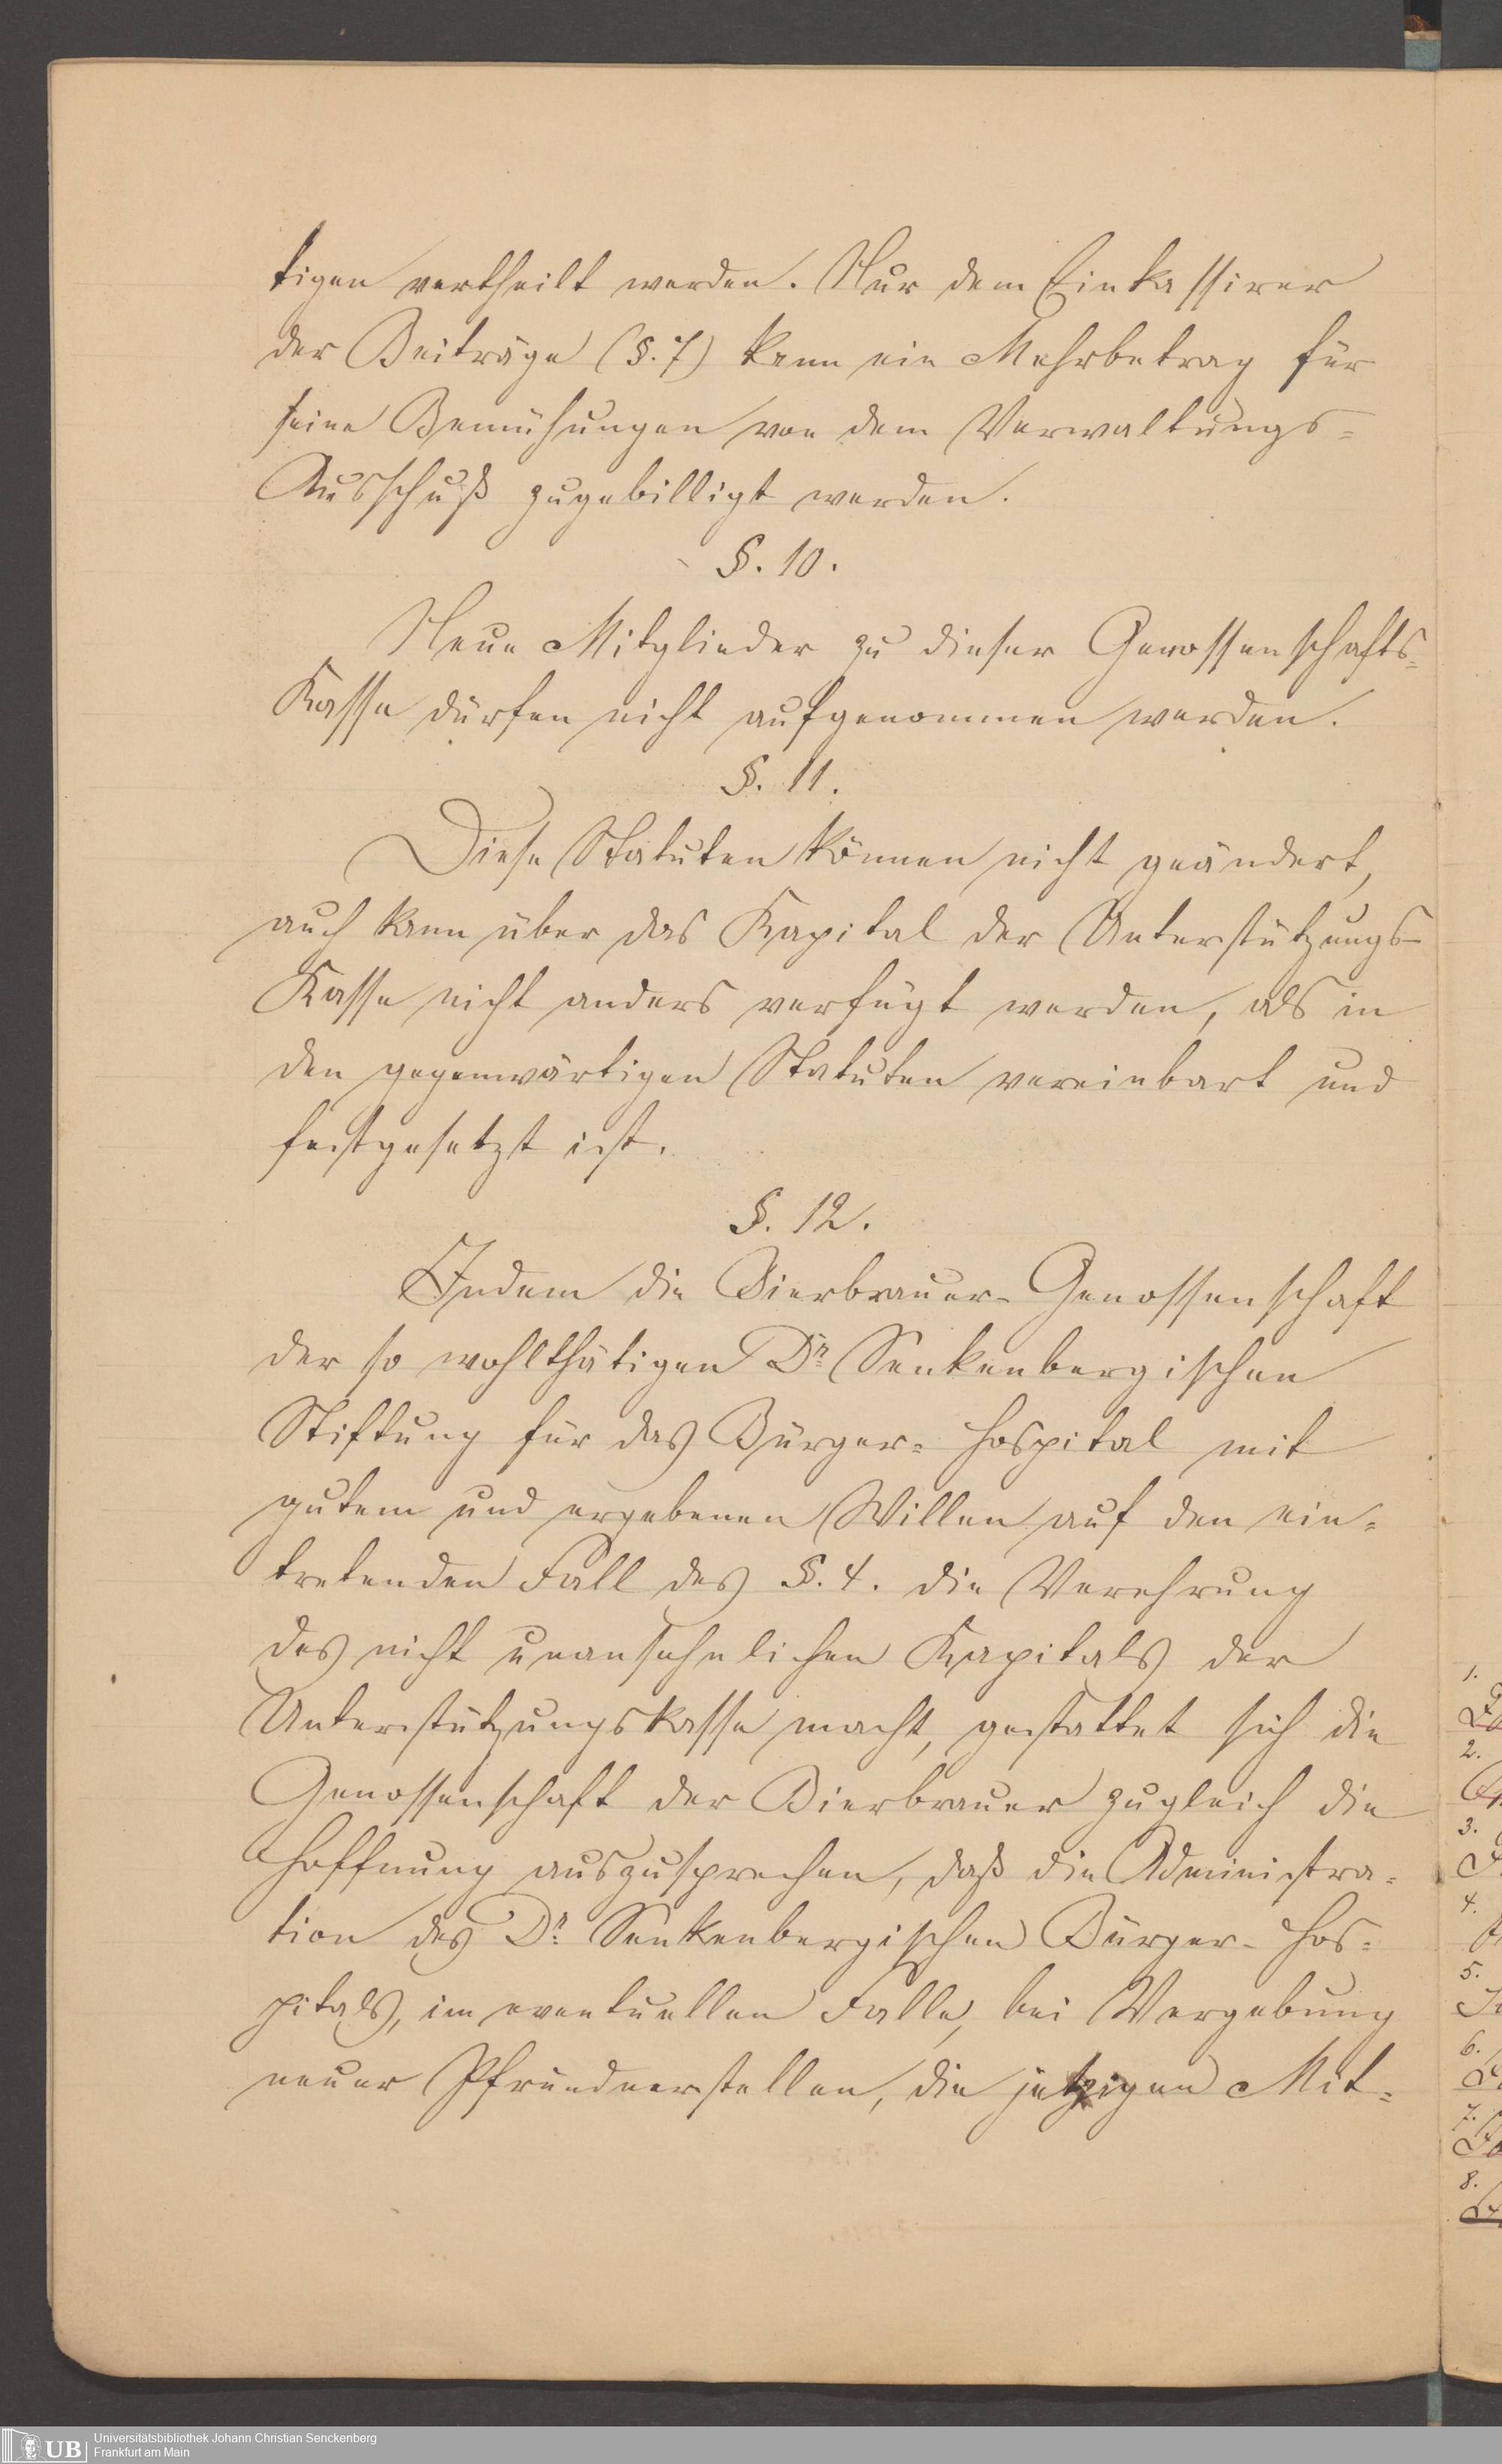 tigen vertheilt werden. Nur dem Einkassirer
der Beiträge (§. 7) kann ein Mehrbetrag für
seine Bemühungen von dem Verwaltungs=
Ausschuß zugebilligt werden.
§. 10.
Neue Mitglieder zu dieser Genossenschafts=
Kasse dürfen nicht aufgenommen werden.
§. 11.
Diese Statuten können nicht geändert,
auch kann über das Kapital der Unterstützungs-
Kasse nicht anders verfügt werden, als in
den gegenwärtigen Statuten vereinbart und
festgesetzt ist.
§. 12.
Indem die Bierbrauer-Genossenschaft
der so wohlthätigen Dr. Senkenbergischen
Stiftung für das Bürger=Hospital mit
gutem und ergebenen Willen auf den ein=
tretenden Fall des §. 4. die Verehrung
des nicht unansehnlichen Kapitals der
Unterstützungskasse macht, gestattet sich die
Genossenschaft der Bierbrauer zugleich die
Hoffnung auszusprechen, daß die Administra=
tion des Dr. Senkenbergischen Bürger-Hos=
pitals, im eventuellen Falle, bei Vergebung
neuer Pfründnerstellen, die jetzigen Mit=
1.
2.
3.
4.
5.
6.
7.
8.
UB
Universitätsbibliothek Johann Christian Senckenberg
Frankfurt am Main